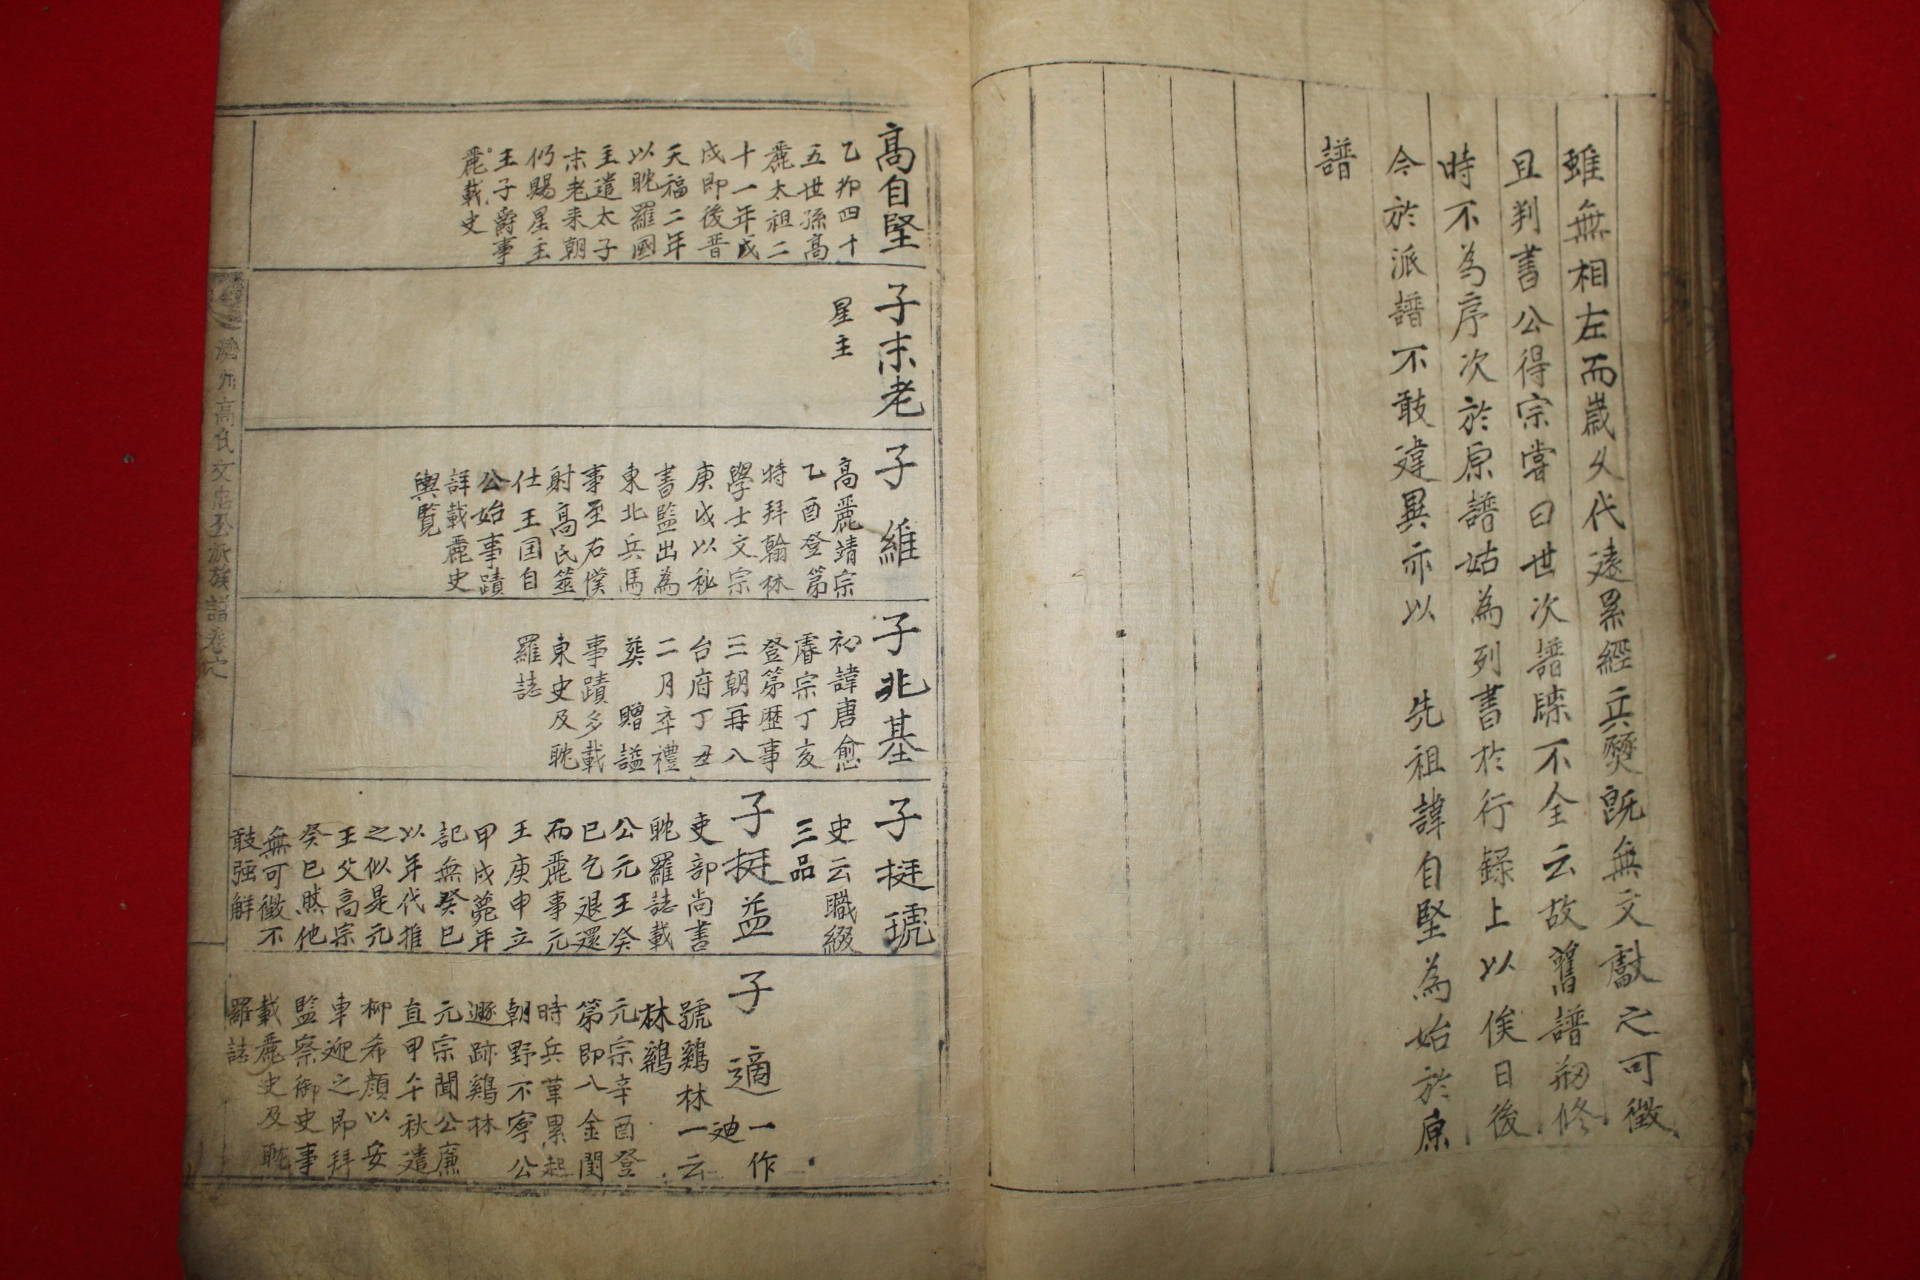 雖無相左而歲久代遠累經兵燹旣無文獻之可徵
且判書公得宗嘗曰世次譜牒不全云故舊譜刱修
時不為序次於原譜姑為列書於行錄上以俟日後
今於派譜不敢違異亦以 先祖諱自堅為始於原
譜
高自堅
乙那四十
五世孫高
麗太祖二
十一年戊
戌即後晋
天福二年
以耽羅國
主遣太子
末老来朝
仍賜星主
王子爵事
麗載史
子末老
星主
子 維
高麗靖宗
乙酉登第
特拜翰林
學士文宗
庚戌以秘
書監出為
東北兵馬
事至右僕
射高氏筮
仕王国自
公始事蹟
詳載麗史
輿覧
子兆基
初諱唐愈
睿宗丁亥
登第歴事
三朝再入
台府丁丑
二月卒禮
葬 贈諡
事蹟多載
東史及耽
羅誌
子挺琥
史云職綴
三品
子挺益
吏部尚書
耽羅誌載
公元王癸
巳乞退還
而麗事元
王庚申立
甲戌薨年
記無癸巳
以年代推
之似是元
王父高宗
癸巳然他
無可徵不
敢强解
子 適 一作
廸
號鷄林一云
林鷄
元宗辛酉登
第即八金閨
時兵革累起
朝野不寧公
遯跡鷄林
元宗聞公廉
直甲午秋遣
柳希顔以安
車迎之即拜
監察御史事
載麗史及耽
羅誌
高氏文忠公派族譜卷之